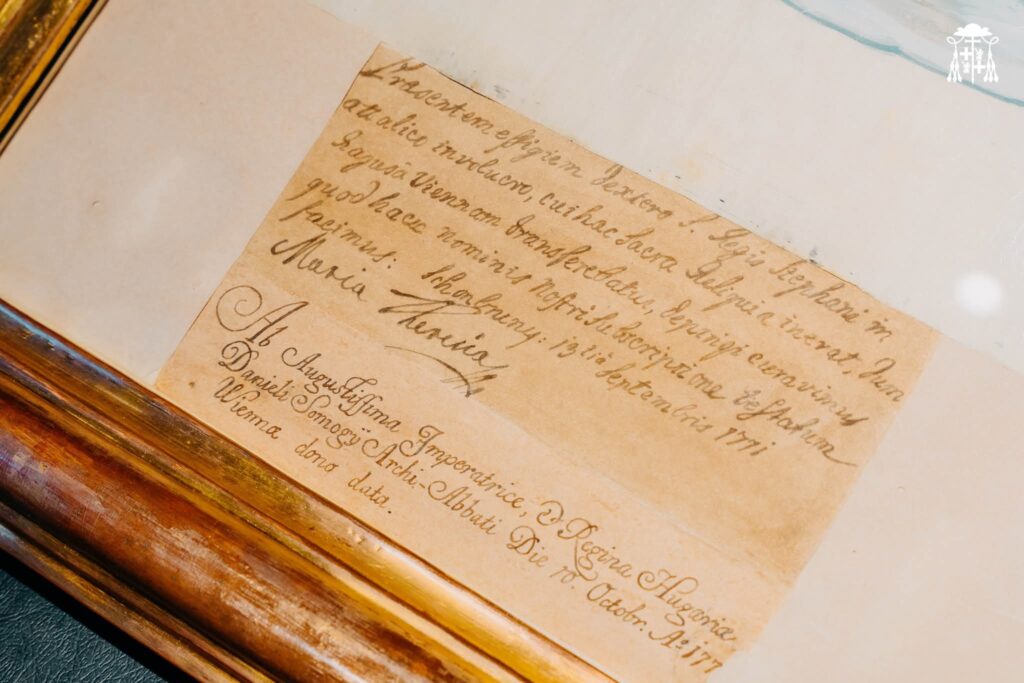 Praesentem effigiem dexterae S. Regis Stephani in
attalico involucro, cui haec Sacra Reliquia inerat, dum
Ragusâ Viennam transferebatur, depingi curavimus
quod hacce nominis Nostri subscriptione testatum
facimus: Schönbrunn: 13tia Septembris 1771
Maria Theresia
Ab Augustissima Imperatrice, & Regina Hugariæ
Danieli Somogÿ Archi-Abbati Die 10. Octobr. Aº 177
Vienna dono data.